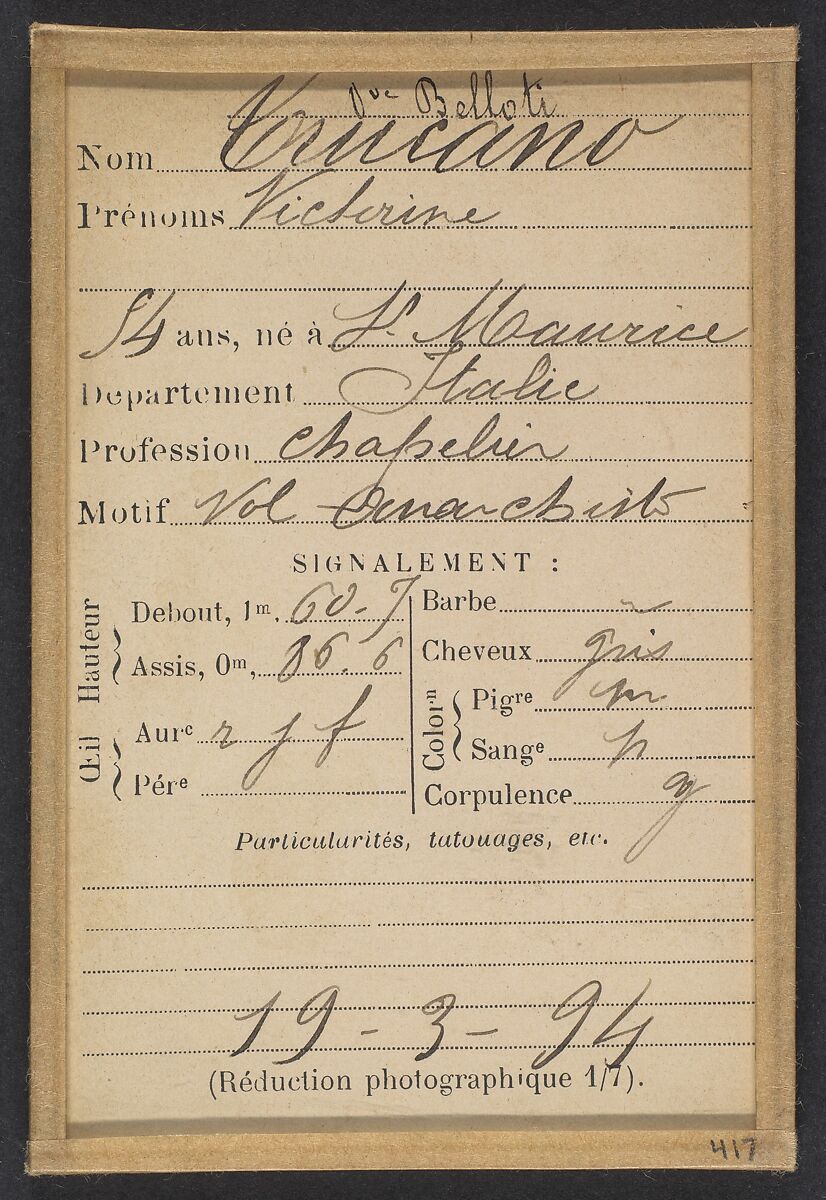 Vve Belloti
Nom Trucano
Prénoms Victorine
54 ans, né à St Maurice
Département Italie
Profession Chapelier
Motif Vol - Anarchiste
SIGNALEMENT :
Hauteur
Debout, 1m. 60-7
Assis, 0m, 86.6
Œil
Aure r j f
Pére
Barbe -
Cheveux gris
Colorn
Pigre m
Sange p
Corpulence g
Particularités, tatouages, etc.
19 - 3 - 94
(Réduction photographique 1/7).
417